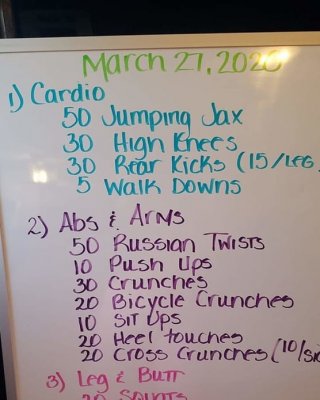 March 27, 2020
1) Cardio
50 Jumping Jax
30 High Knees
30 Rear Kicks (15/Leg
5 Walk Downs
2) Abs & Arms
50 Russian Twists
10 Push Ups
30 Crunches
20 Bicycle Crunches
10 Sit Ups
20 Heel touches
20 Cross Crunches (10/si
3) Leg & Butt
20 Squats